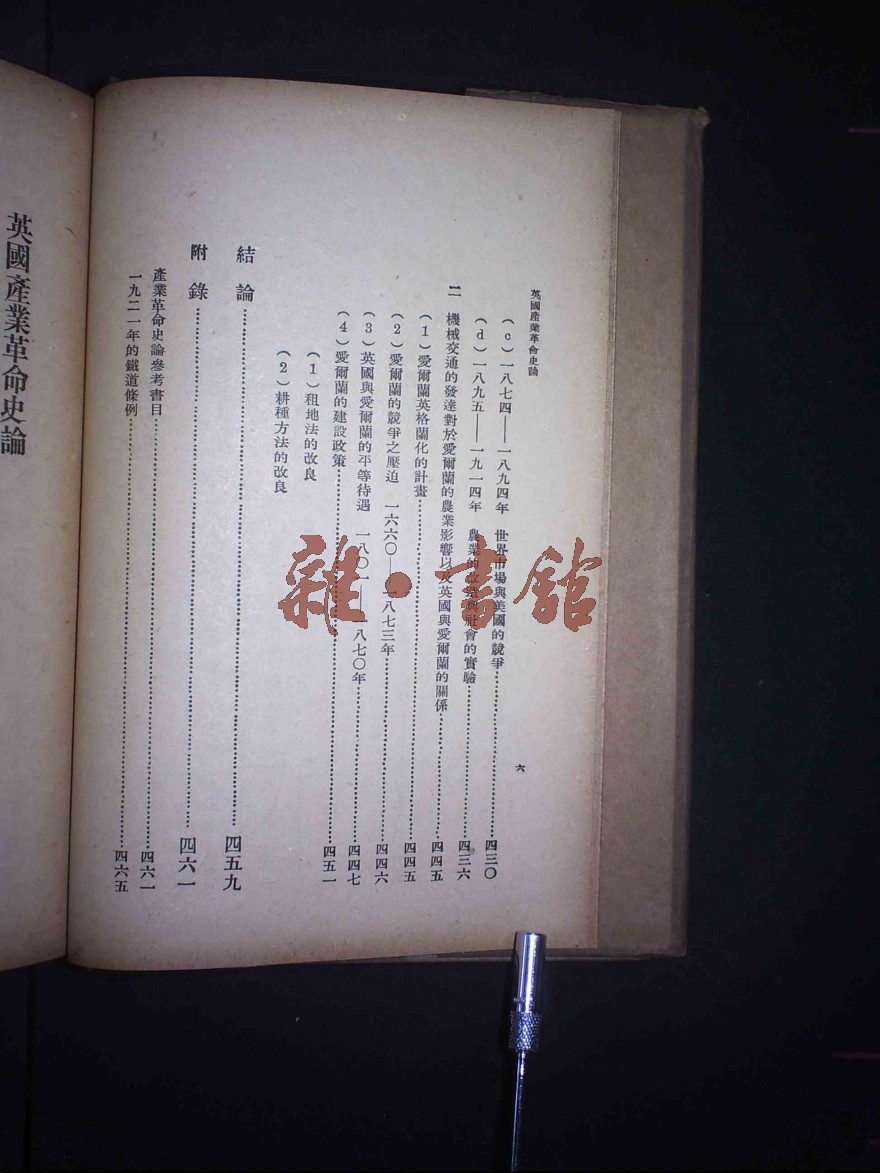 英國產業革命史論
六
（c）一八七四——一八九四年　世界市場與美國的競爭……四三〇
（d）一八九五——一九一四年　農業的改造與社會的實驗……四三六
二　機械交通的發達對於愛爾蘭的農業影響以及英國與愛爾蘭的關係……四四五
（1）愛爾蘭英格蘭化的計畫……四四五
（2）愛爾蘭的競爭之壓迫　一六六〇——一八七三年……四四六
（3）英國與愛爾蘭的平等待遇　一八〇一——一八七〇年……四四七
（4）愛爾蘭的建設政策……四五一
（1）租地法的改良
（2）耕種方法的改良
結論……四五九
附錄……四六一
產業革命史論參考書目……四六一
一九二一年的鐵道條例……四六五
英國產業革命史論
雜·書館